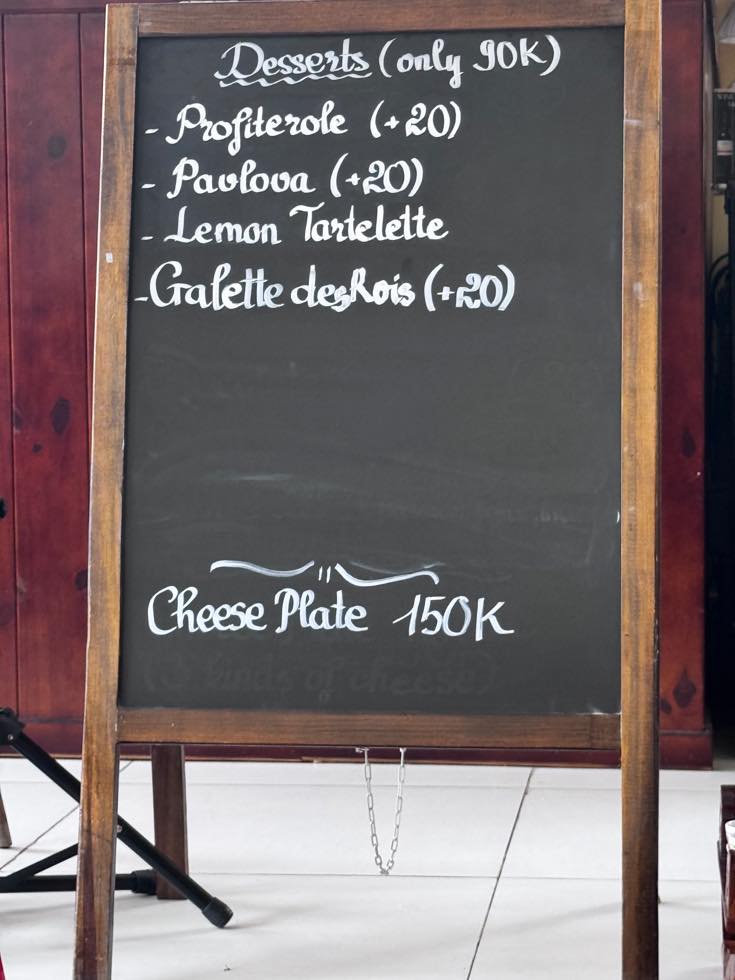 Desserts (only 90K)
- Profiterole (+20)
- Pavlova (+20)
- Lemon Tartelette
- Galette des Rois (+20)
Cheese Plate 150K
(3 kinds of cheese)